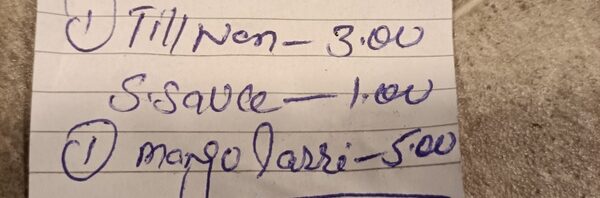 ① Till Nan - 3.00
S.Sauce - 1.00
① mango lassi - 5.00